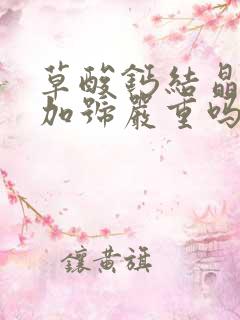 草酸鈣結晶
加號嚴重嗎
鑲黃旗